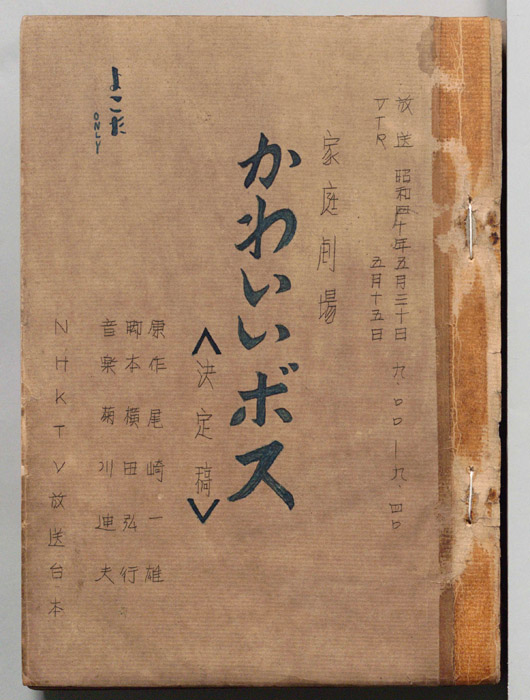 放送 昭和四十年五月三十日 九・〇〇―九・四〇
VTR 五月十五日
家庭劇場
かわいいボス
<決定稿>
原作 尾崎一雄
脚本 横田弘行
音楽 菊川迪夫
NHKTV放送台本
よこた
ONLY